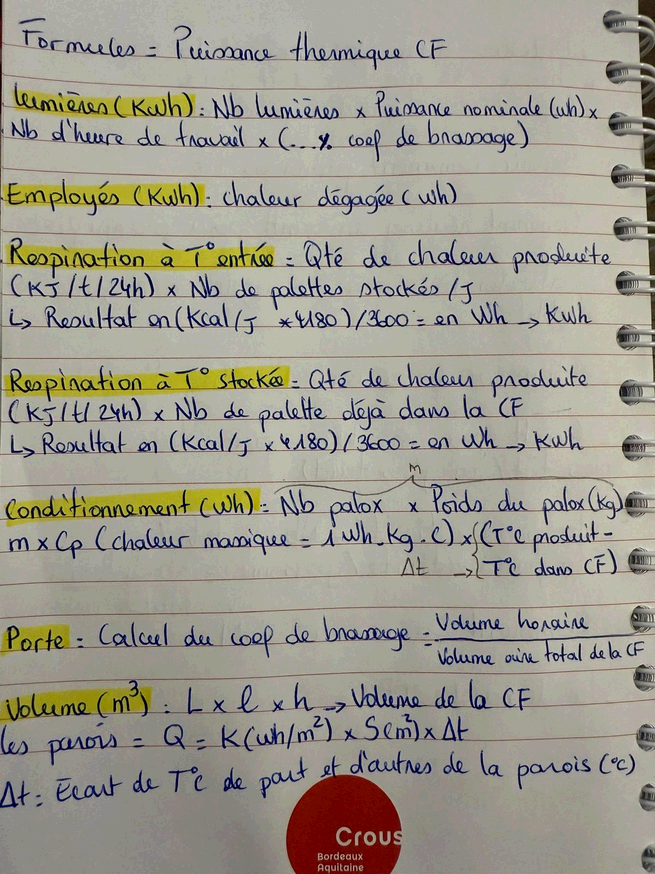 Formules = Puissance thermique CF
lumières (Kwh) : Nb lumières x Puissance nominale (wh) x
Nb d'heure de travail x (...% coef de brassage)
Employés (Kwh) : chaleur dégagée (wh)
Respiration à T° entrée = Qté de chaleur produite
(KJ/t/24h) x Nb de palettes stockés /J
↳ Resultat en (Kcal/J *4180)/3600 = en Wh → Kwh
Respiration à T° stockée = Qté de chaleur produite
(KJ/t/24h) x Nb de palette déjà dans la CF
↳ Resultat en (Kcal/J x 4180)/3600 = en Wh → Kwh
m
Conditionnement (Wh) = Nb palox x Poids du palox (kg)
m x Cp (chaleur massique = 1 Wh.Kg.C) x {(T°C produit -
Δt → { T°C dans CF)
Porte = Calcul du coef de brassage = Volume horaire
Volume aire total de la CF
Volume (m³) : L x l x h → Volume de la CF
les parois = Q = K(wh/m²) x S(m²) x Δt
Δt : Ecart de T°C de part et d'autres de la parois (°C)
Crous
Bordeaux
Aquitaine